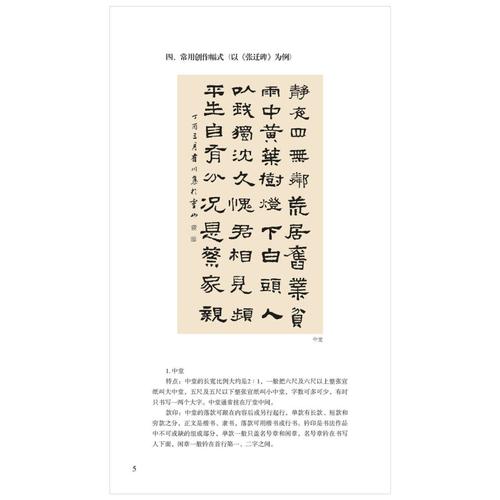 四、常用创作幅式（以《张迁碑》为例）
静夜四無鄰荒居舊業貧
雨中黄葉樹燈下白頭人
以我獨沈久愧君相見頻
平生自有分況是蔡家親
丁酉三月 川集於
中堂
1.中堂
特点：中堂的长宽比例大约是2：1，一般把六尺及六尺以上整张宣
纸叫大中堂，五尺及五尺以下整张宣纸叫小中堂，字数可多可少，有时
只书写一两个大字。中堂通常挂在厅堂中间。
款印：中堂的落款可跟在内容后或另行起行，单款有长款、短款和
穷款之分，正文是楷书、隶书，落款可用楷书或行书。钤印是书法作品
中不可或缺的组成部分，单款一般只盖名号章和闲章，名号章钤在书写
人下面，闲章一般钤在首行第一、二字之间。
5